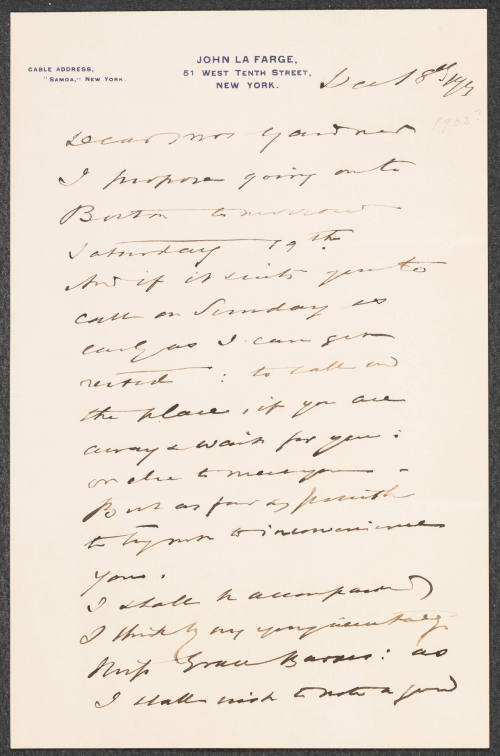 JOHN LA FARGE,
CABLE ADDRESS,
51 WEST TENTH STREET,
"SAMOA," NEW YORK.
NEW YORK.
Dec 18th
1902?
Dear Mrs Gardner
I propose going on to
Boston tomorrow
Saturday 19th
And if it suits you to
call on Sunday as
early as I can get
rested : to call on
the place, if you are
away & wait for you :
or else to meet you -
But as far as possible
to try not to inconvenience
you.
I shall be accompanied
I think by my young
Miss Grace Barnes : as
I shall wish to note a good